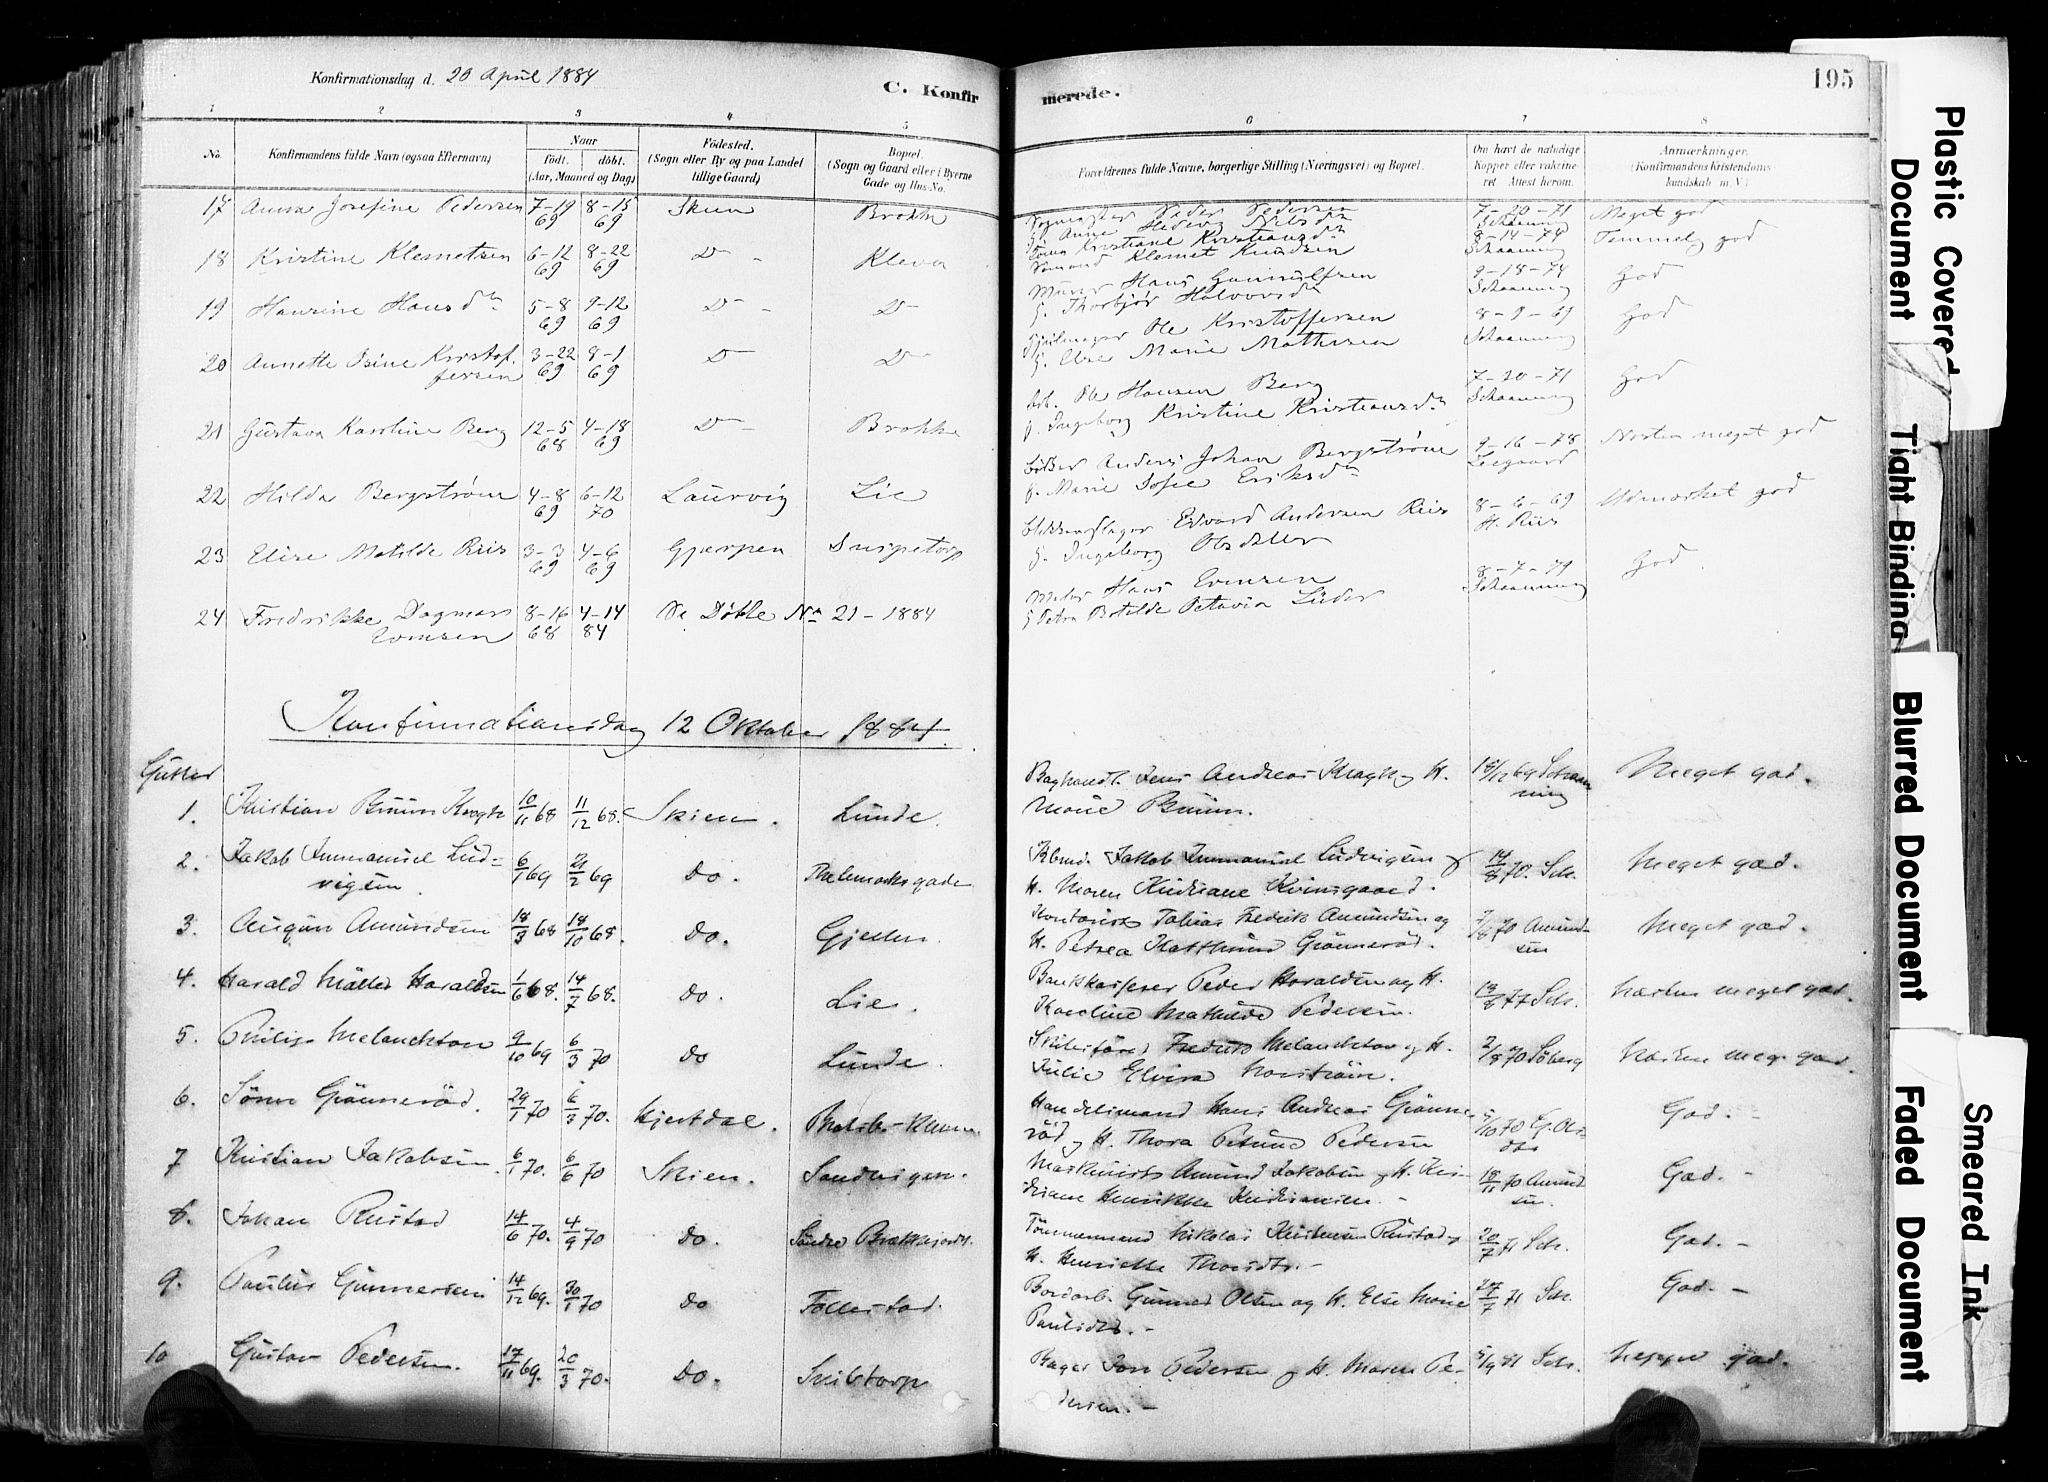 Konfirmationsdag d. 20 April 1884
C. Konfirmerede.
195
1 2 3 4 5 6 7 8
No.
Konfirmandens fulde Navn (ogsaa Efternavn)
Naar
födt. döbt.
(Aar, Maaned og Dag)
Födested.
(Sogn eller By og paa Landet tillige Gaard)
Bopæl.
(Sogn og Gaard eller i Byerne Gade og Hus-No.
Forældrenes fulde Navne, borgerlige Stilling (Næringsvei) og Bopæl.
Om havt de naturlige Kopper eller vaccineret Attest herom.
Anmærkninger.
(Konfirmandens Kristendomskundskab m. V.)
17 Anna Josefine Pedersen 7-19 69 8-15 69 Skien Brokke Peder Pedersen 7-20-71 Schaanning Meget god
Anne Hedevig Nilsdtr
18 Kristine Klemetsen 6-12 69 8-22 69 Do Kleva Kristiane Kristiansdtr 8-14-74 Schaanning Temmelig god
Klemet Knudsen
19 Hansine Hansdtr 5-8 69 9-12 69 Do Do Murer Hans Gunnulfsen 9-18-74 Schaanning God
H. Thorbjør Halvorsdr
20 Annette Osine Kristoffersen 3-22 69 8-1 69 Do Do Ole Kristoffersen 8-9-69 Schaanning God
H. Else Marie Mathisen
21 Gustava Karoline Berg 12-5 68 4-18 69 Do Brokke Arb. Ole Hansen Berg 7-20-71 Schaanning God
H. Ingeborg Kristine Kristiansdtr
22 Hilda Bergstrøm 4-8 69 6-12 70 Laurvig Lie Anders Johan Bergstrøm 9-16-78 Næsten meget god
H. Marie Sofie Eriksdtr
23 Elise Matilde Riis 3-3 69 4-6 69 Gjerpen Snipetorp Blikkenslager Edvard Andersen Riis 8-6-69 H. Riis Udmærket god
H. Ingeborg Olsdatter
24 Fredrikke Dagmar Evensen 8-16 68 4-14 84 Se Døbte No 21-1884 Maler Hans Evensen 8-7-79 Schaanning God
H. Petra Botilde Oktavia Lüder
Konfirmationsdag 12 Oktober 1884.
Gutter
1. Kristian Bruun Kragh 10/11 68 11/12 68. Skien. Lunde. Boghandl. Jens Andreas Kragh og H. 18/12 69 Schaanning Meget god.
Marie Bruun.
2. Jakob Immanuel Ludvigsen. 6/1 69 21/2 69 Do. Thelemarksgade Jakob Immanuel Ludvigsen og 14/8 70. Sch. Meget god.
H. Maren Kristiane Kvinsgaard.
3. August Amundsen 18/3 68 18/10 68. Do. Gjellen. Kontorist Tobias Fredrik Amundsen og 7/8 70 Amundsen Meget god.
H. Petrea Grönneröd.
4. Harald Möller Haraldsen 1/6 68. 14/7 68. Do. Lie. Bankkasserer Peder Haraldsen og H. 13/8 77 Sch. Næsten meget god.
Karoline Mathilde Pedersen.
5. Philip Melanchton 9/10 69 6/3 70 Do Lunde. Skibsförer Fredrik Melanchton og H. 2/8 70 Söberg Næsten meget god.
Julie Elvira Norström.
6. Sören Grönneröd. 29/1 70 6/3 70. Hjertdal. Handelsmand Hans Andreas Grönneröd 5/10 70 God. -
og H. Thora Petrine Pedersen
7 Kristian Jakobsen. 6/1 70. 6/6 70 Skien. Sandvigen. Maskinist Amund Jakobsen og H. Kristiane Henrikke Kristiansen. - 18/11 70 Amundsen. God. -
8. Johan Rustad 14/6 70. 4/9 70 Do. Söndre Brækkejordet. Tömmermand Nikolai Kristensen Rustad og 20/7 71 Sch. God. -
H. Henriette Thorsdtr. -
9. Paulus Gunnersen 14/12 69. 30/1 70 Do Follestad. Bordarb. Gunner Olsen og H. Else Marie 27/7 71 Sch. God. -
Paulsdtr. -
10 Gustav Pedersen. 17/11 69. 20/3 70. Do. Snibtorp Bager Jon Pedersen og H. Maren Pedersen. - 5/9 81 Sch. Neppe god.
Plastic Covered Document
Tight Binding
Blurred Document
Faded Document
Smeared Ink